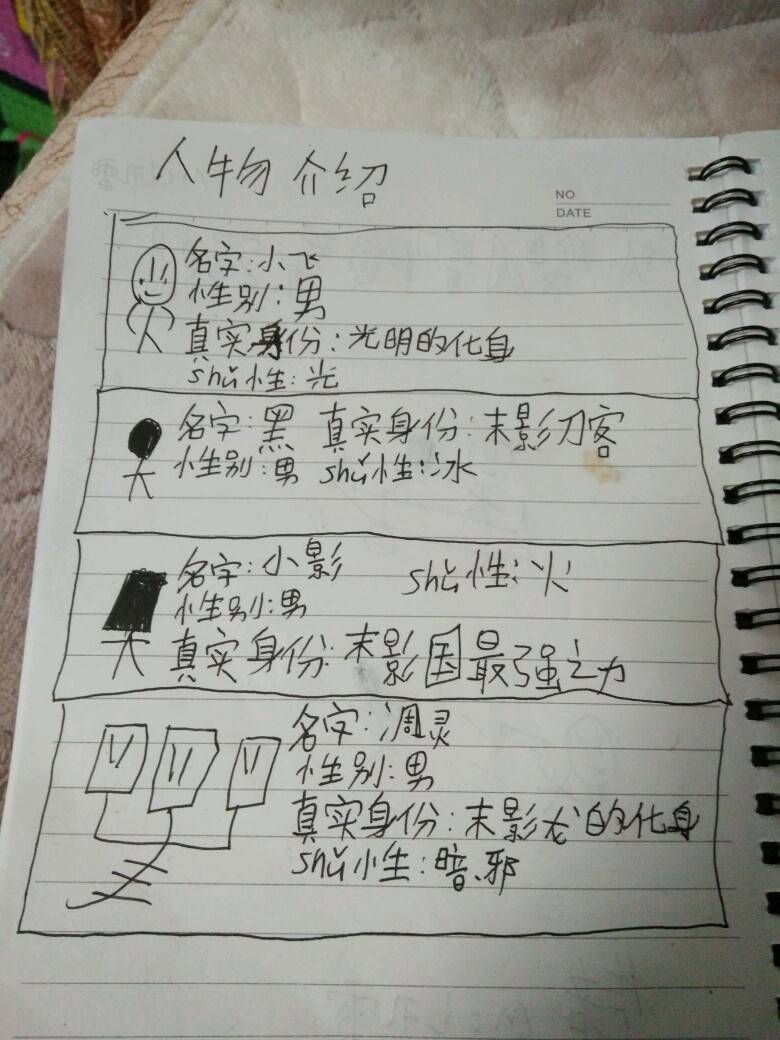 人物介绍
NO
DATE
名字:小飞
性别:男
真实身份:光明的化身
shǔ性:光
名字:黑 真实身份:末影刀客
性别:男 shǔ性:冰
名字:小影 shǔ性:火
性别:男
真实身份:末影国最强之力
名字:凋灵
性别:男
真实身份:末影龙的化身
shǔ性:暗、邪